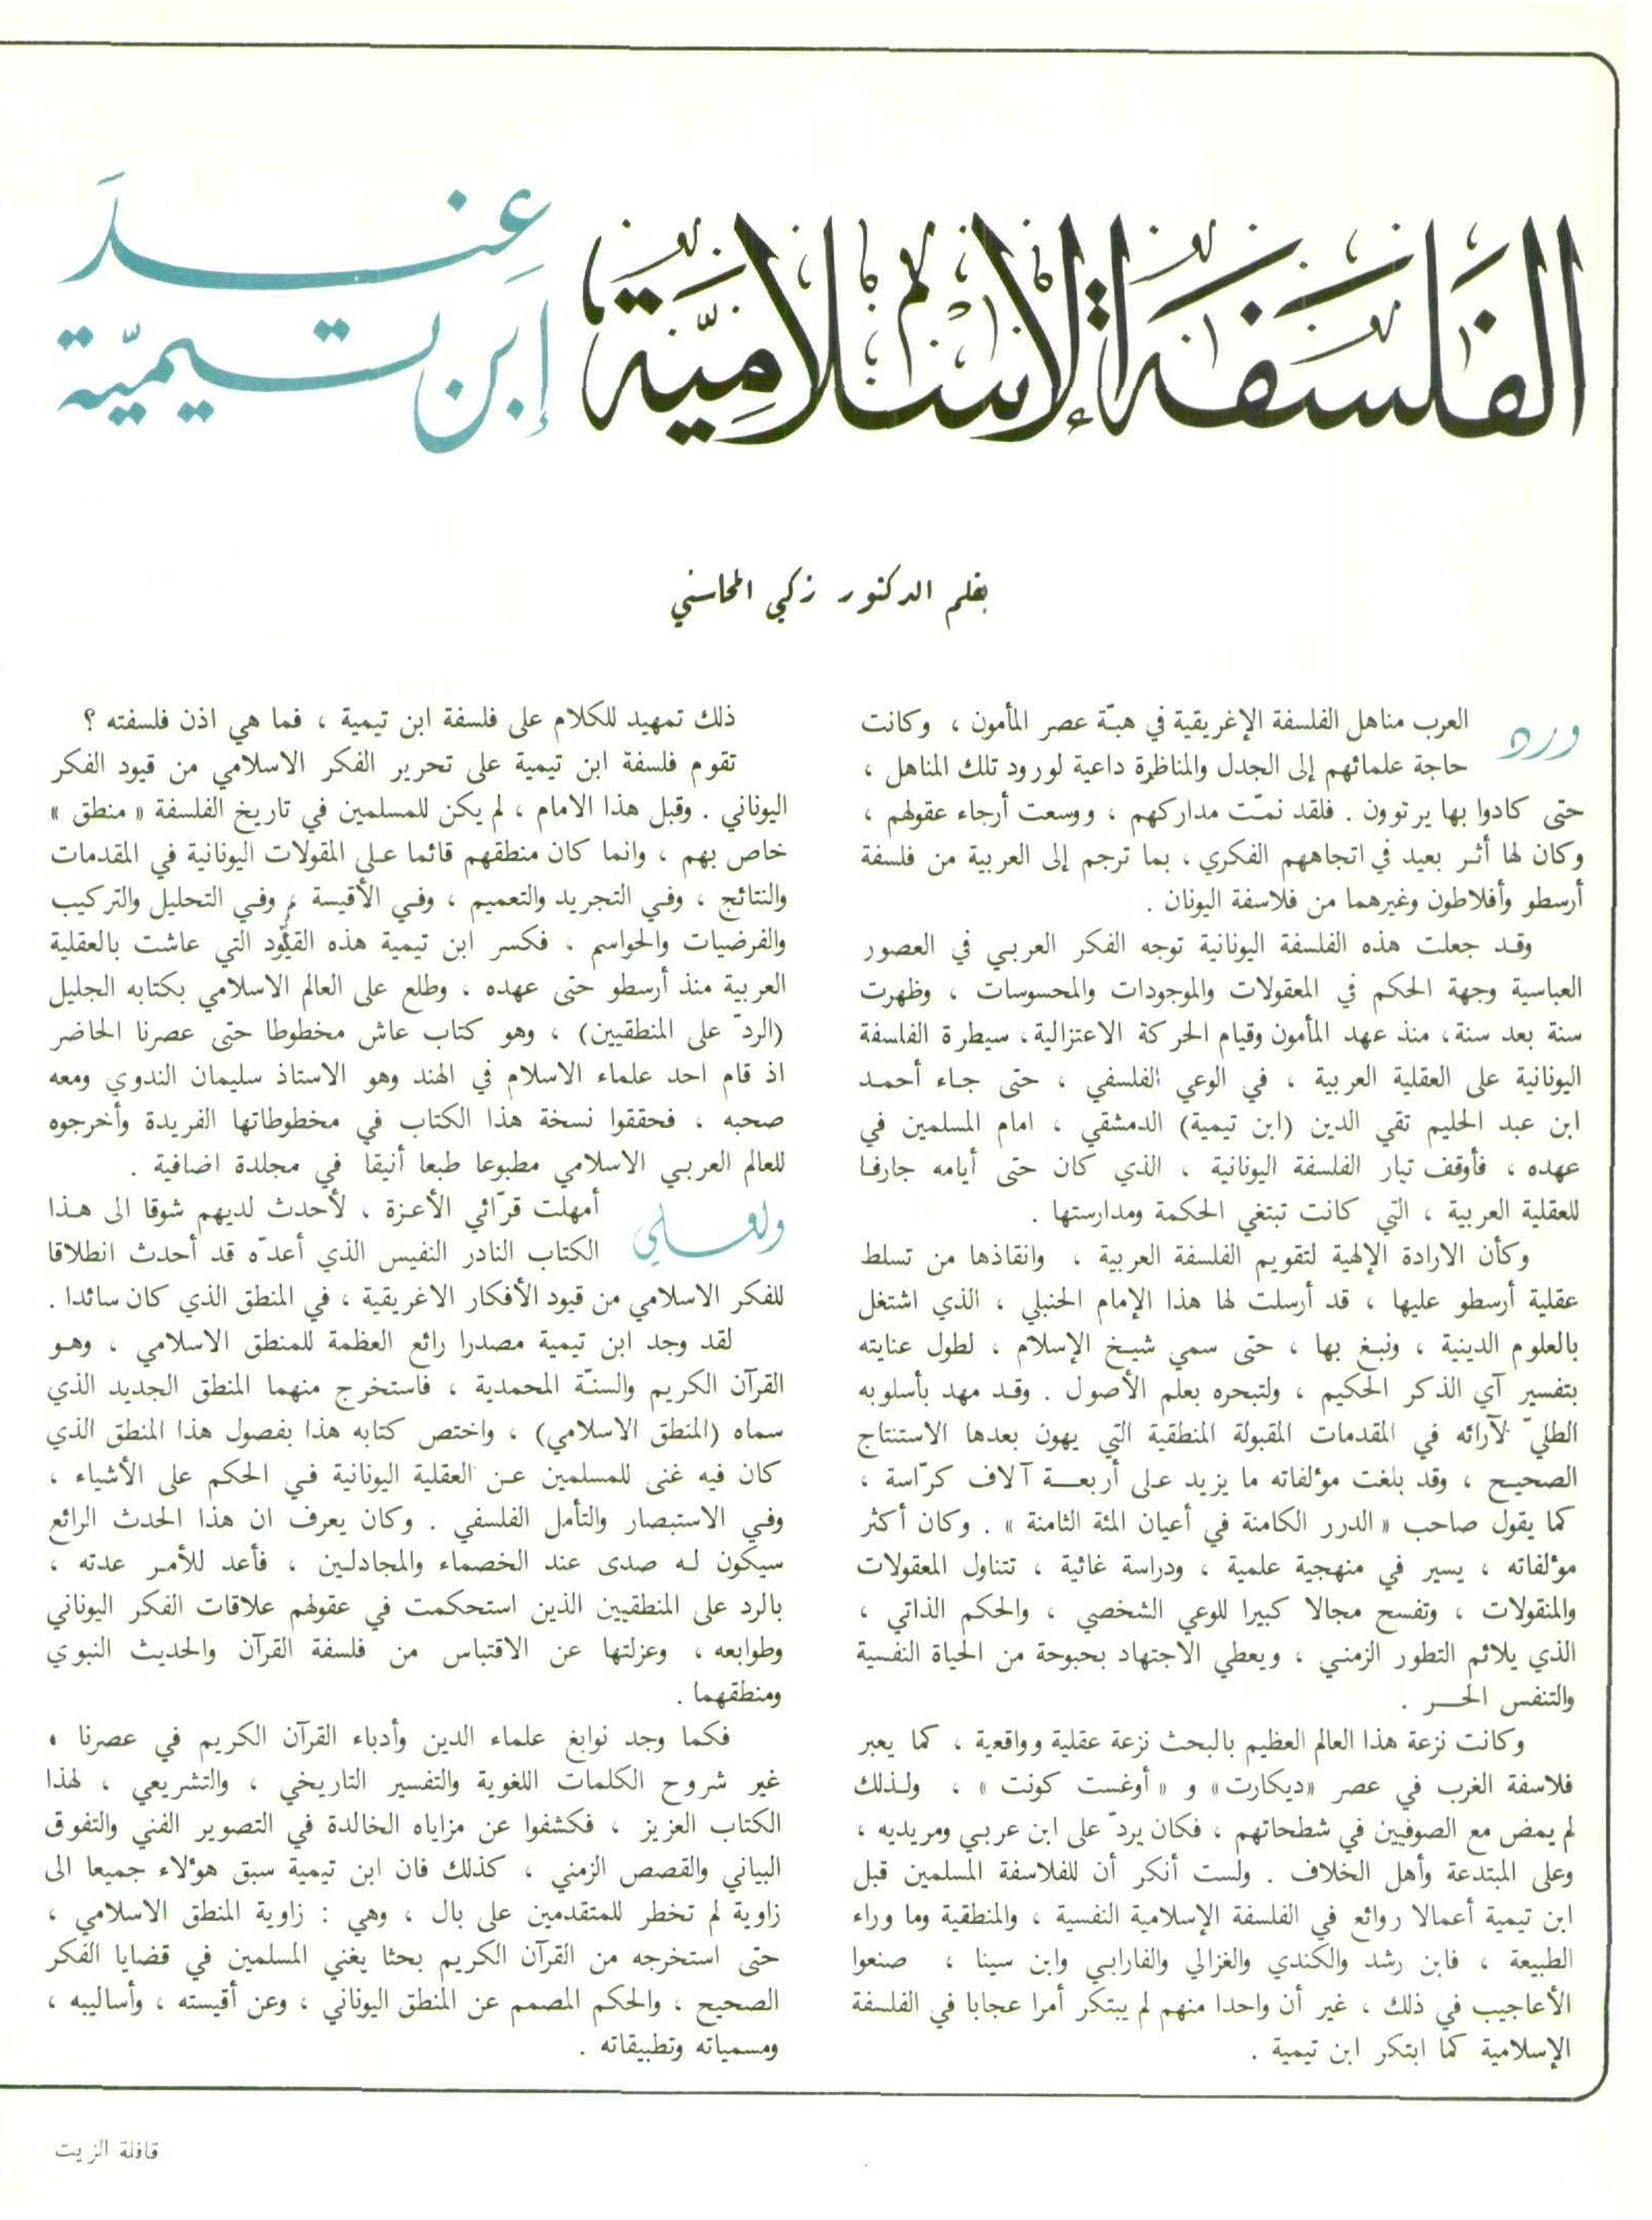 الفلسفة الإسلامية عند
إبن تيمية
بقلم الدكتور زكي المحاسني
ورد العرب مناهل الفلسفة الإغريقية في هبّة عصر المأمون ، وكانت
حاجة علمائهم إلى الجدل والمناظرة داعية لورود تلك المناهل ،
حتى كادوا بها يرتوون . فلقد نمّت مداركهم ، ووسعت أرجاء عقولهم ،
وكان لها أثر بعيد في اتجاههم الفكري ، بما ترجم إلى العربية من فلسفة
أرسطو وأفلاطون وغيرهما من فلاسفة اليونان .
وقد جعلت هذه الفلسفة اليونانية توجه الفكر العربي في العصور
العباسية وجهة الحكم في المعقولات والموجودات والمحسوسات ، وظهرت
سنة بعد سنة ، منذ عهد المأمون وقيام الحركة الاعتزالية ، سيطرة الفلسفة
اليونانية على العقلية العربية ، في الوعي الفلسفي ، حتى جاء أحمد
ابن عبد الحليم تقي الدين (ابن تيمية) الدمشقي ، امام المسلمين في
عهده ، فأوقف تيار الفلسفة اليونانية ، الذي كان حتى أيامه جارفا
للعقلية العربية ، التي كانت تبتغي الحكمة ومدارستها .
وكأن الارادة الإلهية لتقويم الفلسفة العربية ، وانقاذها من تسلط
عقلية أرسطو عليها ، قد أرسلت لها هذا الإمام الحنبلي ، الذي اشتغل
بالعلوم الدينية ، ونبغ بها ، حتى سمي شيخ الإسلام ، لطول عنايته
بتفسير آي الذكر الحكيم ، ولتبحره بعلم الأصول . وقد مهد بأسلوبه
الطليّ لآرائه في المقدمات المقبولة المنطقية التي يهون بعدها الاستنتاج
الصحيح ، وقد بلغت مؤلفاته ما يزيد على أربعة آلاف كرّاسة ،
كما يقول صاحب « الدرر الكامنة في أعيان المئة الثامنة » . وكان أكثر
مؤلفاته ، يسير في منهجية علمية ، ودراسة غائية ، تتناول المعقولات
والمنقولات ، وتفسح مجالا كبيرا للوعي الشخصي ، والحكم الذاتي ،
الذي يلائم التطور الزمني ، ويعطي الاجتهاد بحبوحة من الحياة النفسية
والتنفس الحر .
وكانت نزعة هذا العالم العظيم بالبحث نزعة عقلية وواقعية ، كما يعبر
فلاسفة الغرب في عصر «ديكارت» و « أوغست كونت » ، ولذلك
لم يمض مع الصوفيين في شطحاتهم ، فكان يردّ على ابن عربي ومريديه ،
وعلى المبتدعة وأهل الخلاف . ولست أنكر أن للفلاسفة المسلمين قبل
ابن تيمية أعمالا روائع في الفلسفة الإسلامية النفسية ، والمنطقية وما وراء
الطبيعة ، فابن رشد والكندي والغزالي والفارابي وابن سينا ، صنعوا
الأعاجيب في ذلك ، غير أن واحدا منهم لم يبتكر أمرا عجابا في الفلسفة
الإسلامية كما ابتكر ابن تيمية .
ذلك تمهيد للكلام على فلسفة ابن تيمية ، فما هي اذن فلسفته ؟
تقوم فلسفة ابن تيمية على تحرير الفكر الاسلامي من قيود الفكر
اليوناني . وقبل هذا الامام ، لم يكن للمسلمين في تاريخ الفلسفة « منطق »
خاص بهم ، وانما كان منطقهم قائما على المقولات اليونانية في المقدمات
والنتائج ، وفي التجريد والتعميم ، وفي الأقيسة ، وفي التحليل والتركيب
والفرضيات والحواسم ، فكسر ابن تيمية هذه القيود التي عاشت بالعقلية
العربية منذ أرسطو حتى عهده ، وطلع على العالم الاسلامي بكتابه الجليل
(الردّ على المنطقيين) ، وهو كتاب عاش مخطوطا حتى عصرنا الحاضر
اذ قام احد علماء الاسلام في الهند وهو الاستاذ سليمان الندوي ومعه
صحبه ، فحققوا نسخة هذا الكتاب في مخطوطاتها الفريدة وأخرجوه
للعالم العربي الاسلامي مطبوعا طبعا أنيقا في مجلدة اضافية .
ولعلي أمهلت قرّائي الأعزة ، لأحدث لديهم شوقا الى هذا
الكتاب النادر النفيس الذي أعدّه قد أحدث انطلاقا
للفكر الاسلامي من قيود الأفكار الاغريقية ، في المنطق الذي كان سائدا .
لقد وجد ابن تيمية مصدرا رائع العظمة للمنطق الاسلامي ، وهو
القرآن الكريم والسنّة المحمدية ، فاستخرج منهما المنطق الجديد الذي
سماه (المنطق الاسلامي) ، واختص كتابه هذا بفصول هذا المنطق الذي
كان فيه غنى للمسلمين عن العقلية اليونانية في الحكم على الأشياء ،
وفي الاستبصار والتأمل الفلسفي . وكان يعرف ان هذا الحدث الرائع
سيكون له صدى عند الخصماء والمجادلين ، فأعد للأمر عدته ،
بالرد على المنطقيين الذين استحكمت في عقولهم علاقات الفكر اليوناني
وطوابعه ، وعزلتها عن الاقتباس من فلسفة القرآن والحديث النبوي
ومنطقهما .
فكما وجد نوابغ علماء الدين وأدباء القرآن الكريم في عصرنا ،
غير شروح الكلمات اللغوية والتفسير التاريخي ، والتشريعي ، لهذا
الكتاب العزيز ، فكشفوا عن مزاياه الخالدة في التصوير الفني والتفوق
البياني والقصص الزمني ، كذلك فان ابن تيمية سبق هؤلاء جميعا الى
زاوية لم تخطر للمتقدمين على بال ، وهي : زاوية المنطق الاسلامي ،
حتى استخرجه من القرآن الكريم بحثا يغني المسلمين في قضايا الفكر
الصحيح ، والحكم المصمم عن المنطق اليوناني ، وعن أقيسته ، وأساليبه ،
ومسمياته وتطبيقاته .
قافلة الزيت